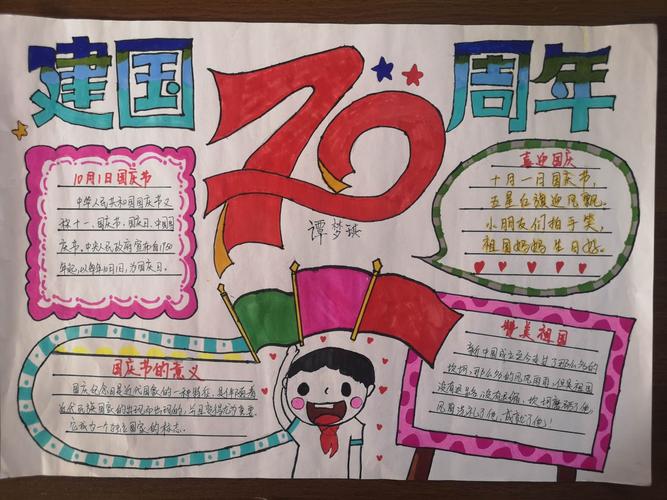 建国70周年
谭梦琪
10月1日国庆节
中华人民共和国国庆节又
称十一、国庆节、国庆日、中国国
庆节。中央人民政府宣布自1950
年起,以每年10月1日,为国庆日。
喜迎国庆
十月一日国庆节,
五星红旗迎风飘。
小朋友们拍手笑,
祖国妈妈生日好。
国庆节的意义
国庆纪念日是近代国家的一种特征,是伴随着
近代民族国家的出现而出现的,并且变得尤为重要。
它成为一个独立国家的标志。
赞美祖国
新中国成立至今走过了那么多的
坎坷,那么多的风风雨雨,但是祖国
没有退缩,没有